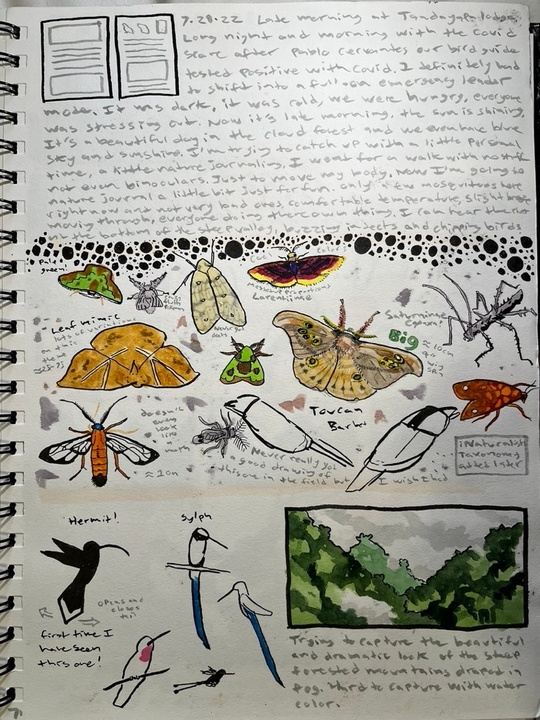 7.28.22 Late morning at Tandayapa lodge.
Long night and morning with the Covid
scare after Pablo Cervantes our bird guide
tested positive with Covid. I definitely had
to shift into a full on emergency leader
mode. It was dark, it was cold, we were hungry, everyone
was stressing out. Now it's late morning, the sun is shining,
It's a beautiful day in the cloud forest and we even have blue
sky and sunshine. I'm trying to catch up with a little personal
time, a little nature journaling, I went for a walk with
not even binoculars. Just to move my body, Now I'm going to
nature journal a little bit just for fun. only a few mosquitoes here
right now and very bad ones, comfortable temperature, slight
moving through, everyone doing their own thing, I can hear the
bottom of the valley, chipping birds
Pale
green.
Larentiinae
Leaf mimic
lots of variation
Never got
Saturninae
Big ≈ 10cm
doesn't
even
look
like
a
moth
≈ 1cm
Toucan
Barbet
Never really got
a good drawing of
this one in the field but I wish I had
iNaturalist
Taxonomy
added later
Hermit!
Sylph
opens and
closes
tail
first time I
have seen
this one!
Trying to capture the beautiful
and dramatic look of the steep
forested mountains draped in
fog. Hard to capture with water
color.